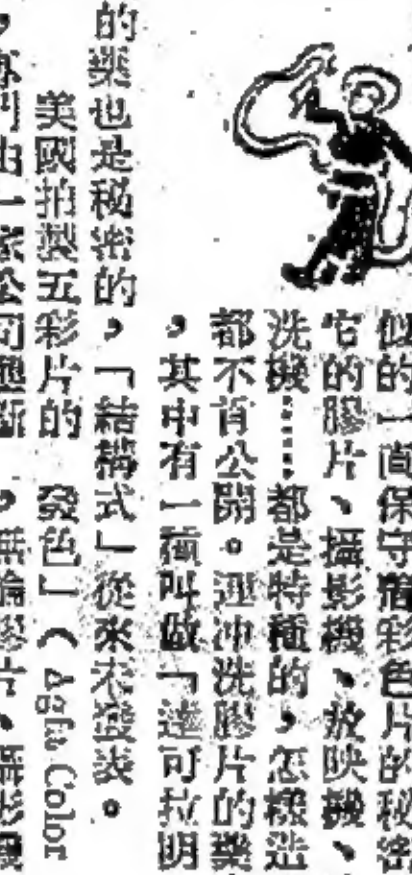 似的一直保守着彩色片的秘密
它的膠片、攝影機、放映機、
洗機……都是特種的，怎樣造
都不肯公開。連冲洗膠片的藥
，其中有一種叫做「達可拉明
的藥也是秘密的，「結構式」從來不發表。
美國拍製五彩片的
由一家公司壟斷
發色」（Agfa Color
，無論膠片、攝影機